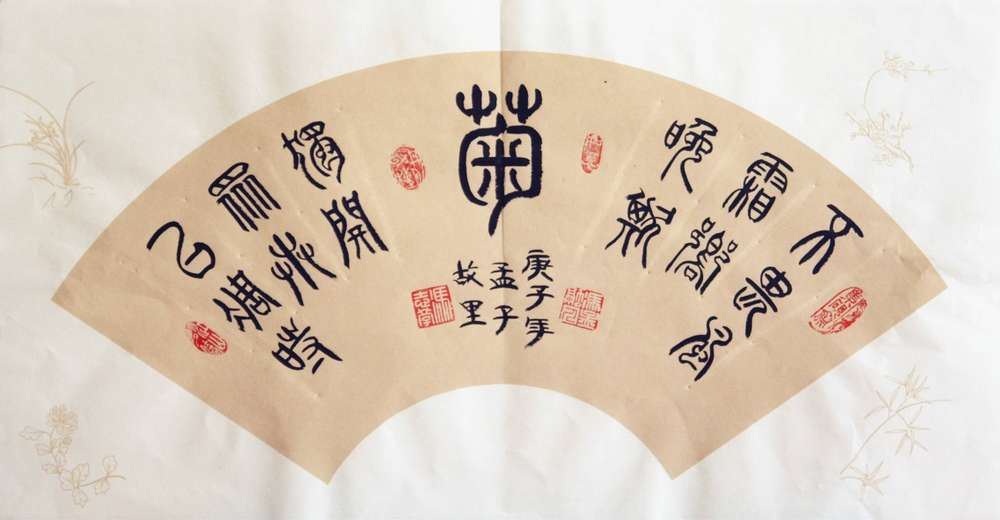 不畏風
霜嚮
晚欺
菊
獨開
眾卉
已凋時
庚子年
孟子
故里